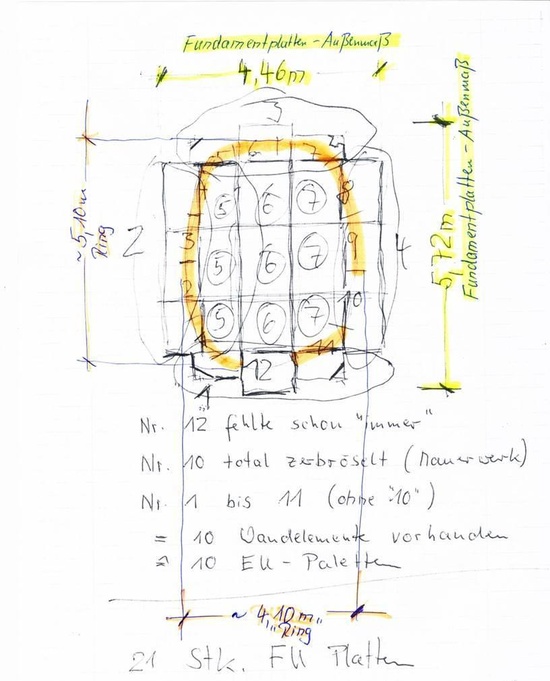 Fundamentplatten-Außenmaß
4,46m
3
5 6 7
2
~5,10m
Ring
5 6 7 8
3 9 4
5 6 7
2 10
5 6 7
1 12 11
1
5,72m
Fundamentplatten-Außenmaß
Nr. 12 fehlte schon "immer"
Nr. 10 total zerbröselt (Mauerwerk)
Nr. 1 bis 11 (ohne "10")
= 10 Wandelemente vorhanden
≙ 10 EU-Paletten
~ 4,10m
"Ring"
21 Stk. Platten